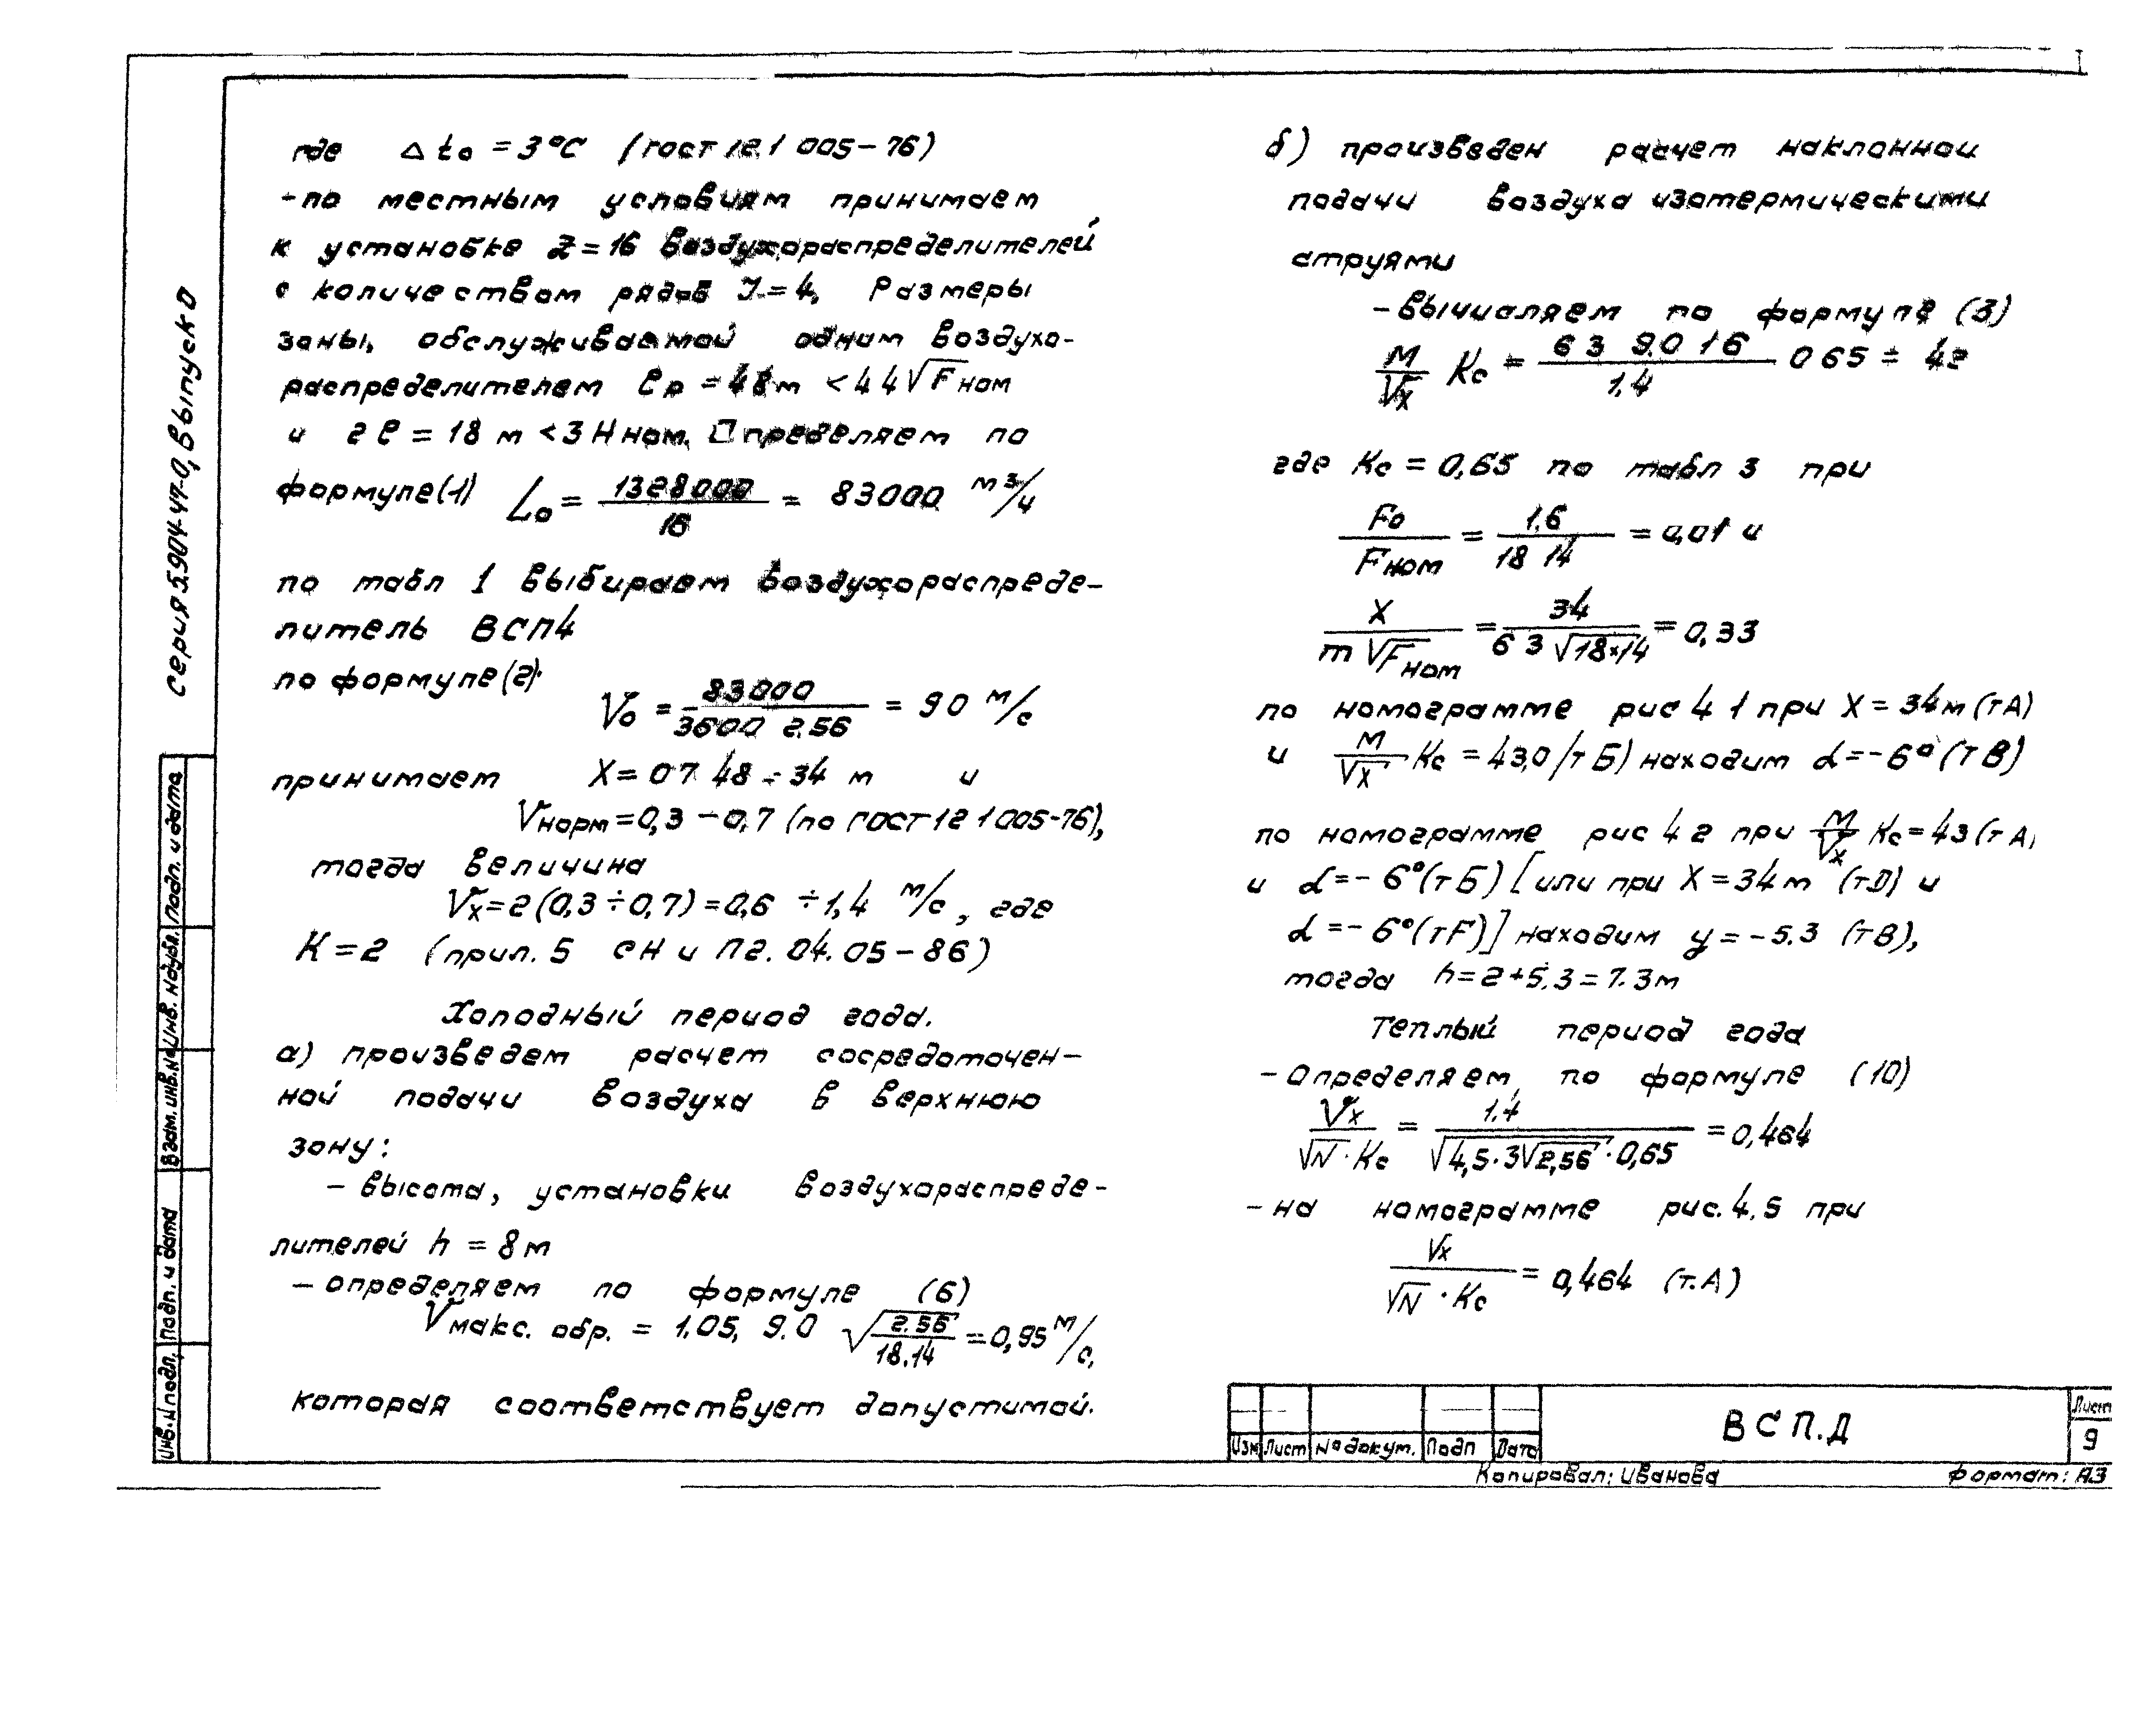 где Δto = 3°С (ГОСТ 12.1 005-76)
-по местным условиям принимаем
к установке Z=16 воздухораспределителей
с количеством рядов J=4, Размеры
зоны, обслуживаемой одним воздухо-
распределителем ℓр = 48м < 4 4√Fном
и 2ℓ = 18 м < 3 Нном. Определяем по
формуле(1) Lo = 1328000/16 = 83000 м³/ч
по табл 1 выбираем воздухораспреде-
литель ВСП4
по формуле(2): Vo = 83000/3600 2.56 = 9 0 м/с
принимает X = 0 7 48 ÷ 34 м и
Vнорм=0,3-0,7 (по ГОСТ 12 1 005-76),
тогда величина
Vx=2(0,3÷0,7)=0,6 ÷1,4 м/с, где
К=2 (прил. 5 СН и П2.04.05-86)
Холодный период года.
а) произведем расчет сосредоточен-
ной подачи воздуха в верхнюю
зону:
- высота, установки воздухораспреде-
лителей h = 8м
- определяем по формуле (6)
Vмакс. обр. = 1.05, 9.0 √2.56/18.14 =0,95 м/с,
которая соответствует допустимой.
б) произведен расчет наклонной
подачи воздуха изотермическими
струями
-вычисляем по формуле (3)
M/Vx Kc = 6 3 9.0 1 6/1.4 0 65 = 42
где Кс = 0,65 по табл 3 при
Fo/Fном = 1.6/18 14 = 0,01 и
X/m√Fном = 34/6 3 √18×14 = 0,33
по номограмме рис 4 1 при X = 34м (тА)
и M/Vx Kc = 43,0 (т Б) находим α=-6° (т В)
по номограмме рис 4 2 при M/Vx Kc=43 (т А)
и α=-6°(т Б) [или при X=34м (тD) и
α=-6°(тF)] находим y=-5.3 (тВ),
тогда h=2+5.3=7.3м
Теплый период года
-определяем, по формуле (10)
Vx/√N·Kc = 1.4/√4,5·3√2,56·0,65 = 0,464
-на номограмме рис. 4.5 при
Vx/√N·Kc = 0,464 (т.А)
Серия 5.904-47-0, Выпуск 0
Инв.N подл. Подп. и дата Взам. инв.N Инв. N дубл. Подп. и дата
Изм Лист № докум. Подп Дата
ВСП.Д
Лист
9
Копировал: Иванова Формат: А3